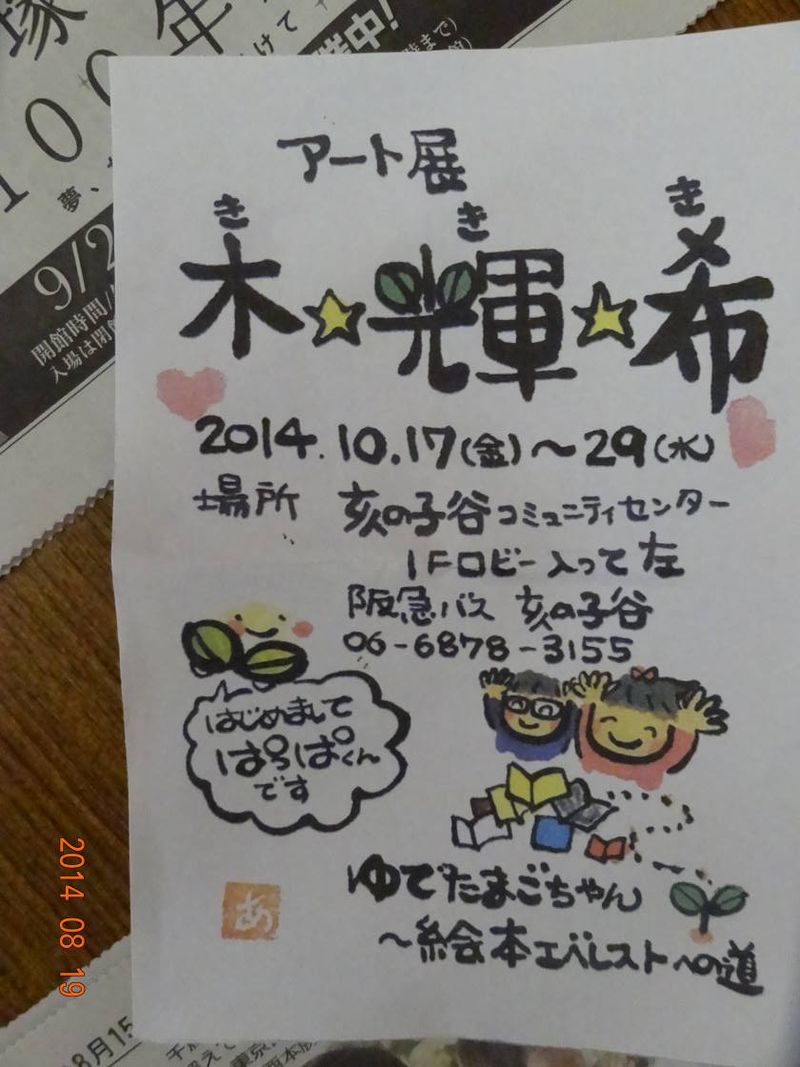 塚
100年
夢、
けて
開催中!
時まで)
館)
9/2
開館時間/
入場は閉館
アート展
き き き
木☆輝☆希
2014.10.17(金)～29(水)
場所 亥の子谷コミュニティセンター
1Fロビー入って左
阪急バス 亥の子谷
06-6878-3155
はじめまして
ぱっぱくん
です
ゆでたまごちゃん
～絵本エベレストへの道
あ
2014 08 19
8月15